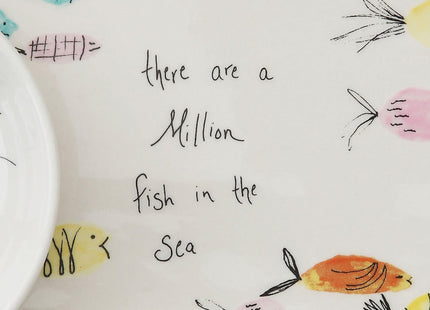 there are a
Million
fish in the
Sea